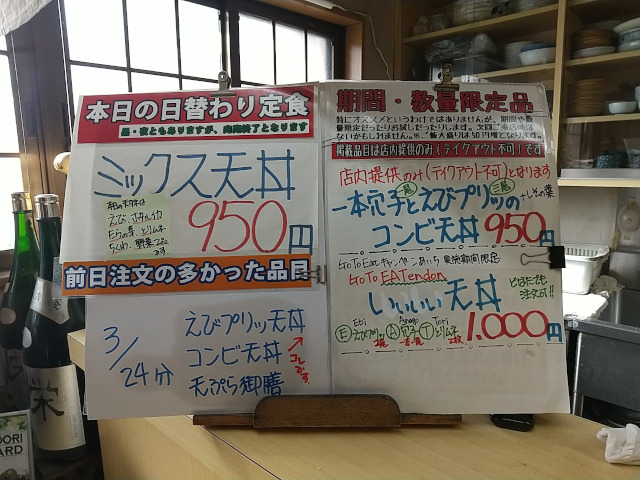 本日の日替わり定食
昼・夜ともありますが、売切終了となります
ミックス天丼
950円
本日の天タネは
えび、
大葉 とりムネ
ちくわ、野菜2品
です
前日注文の多かった品目
3/24分
えびプリッツ天丼
コンビ天丼
天ぷら御膳
コレです
期間・数量限定品
特にオススメというわけではありませんが、期間や数
量限定だったりお試しだったりします。次回ご来店時は
ないかもしれません。※ご飯大盛りは50円増となります。
掲載品目は店内提供のみ(テイクアウト不可)です
店内提供のみ(テイクアウト不可)となります
一本穴子とえびプリッツの
一尾 二尾 +しその葉
コンビ天丼 950円
Go To Eatキャンペーンあいち 実施期間限定
Go To EATendon
いいいい天丼
どなたでも
注文可!!
1,000円
Ebi Anago Tori
Ⓔえびプリッツ Ⓐ穴子 Ⓣとりムネ
2尾 一本 2枚
栄
DORI
ARD